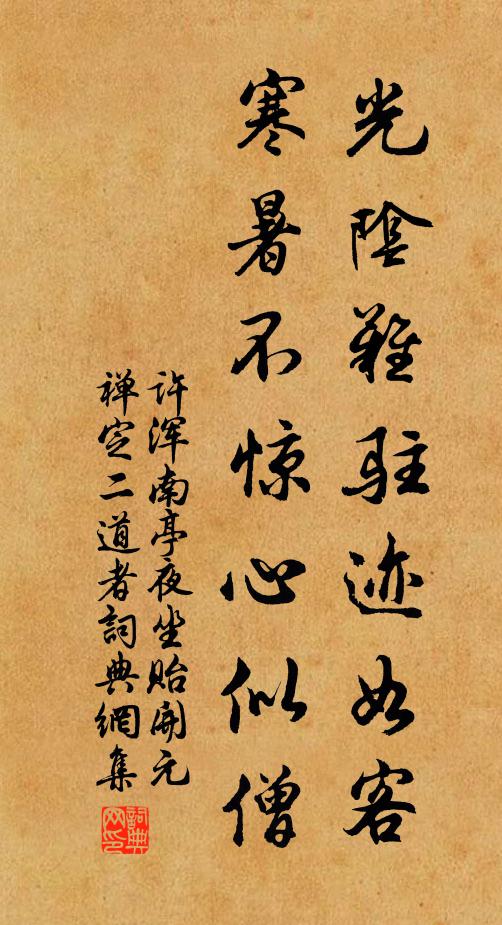 光陰難駐迹如客
寒暑不惊心似僧
许浑南亭夜坐贻開元
禅定二道者詞典網集
詞典
网印